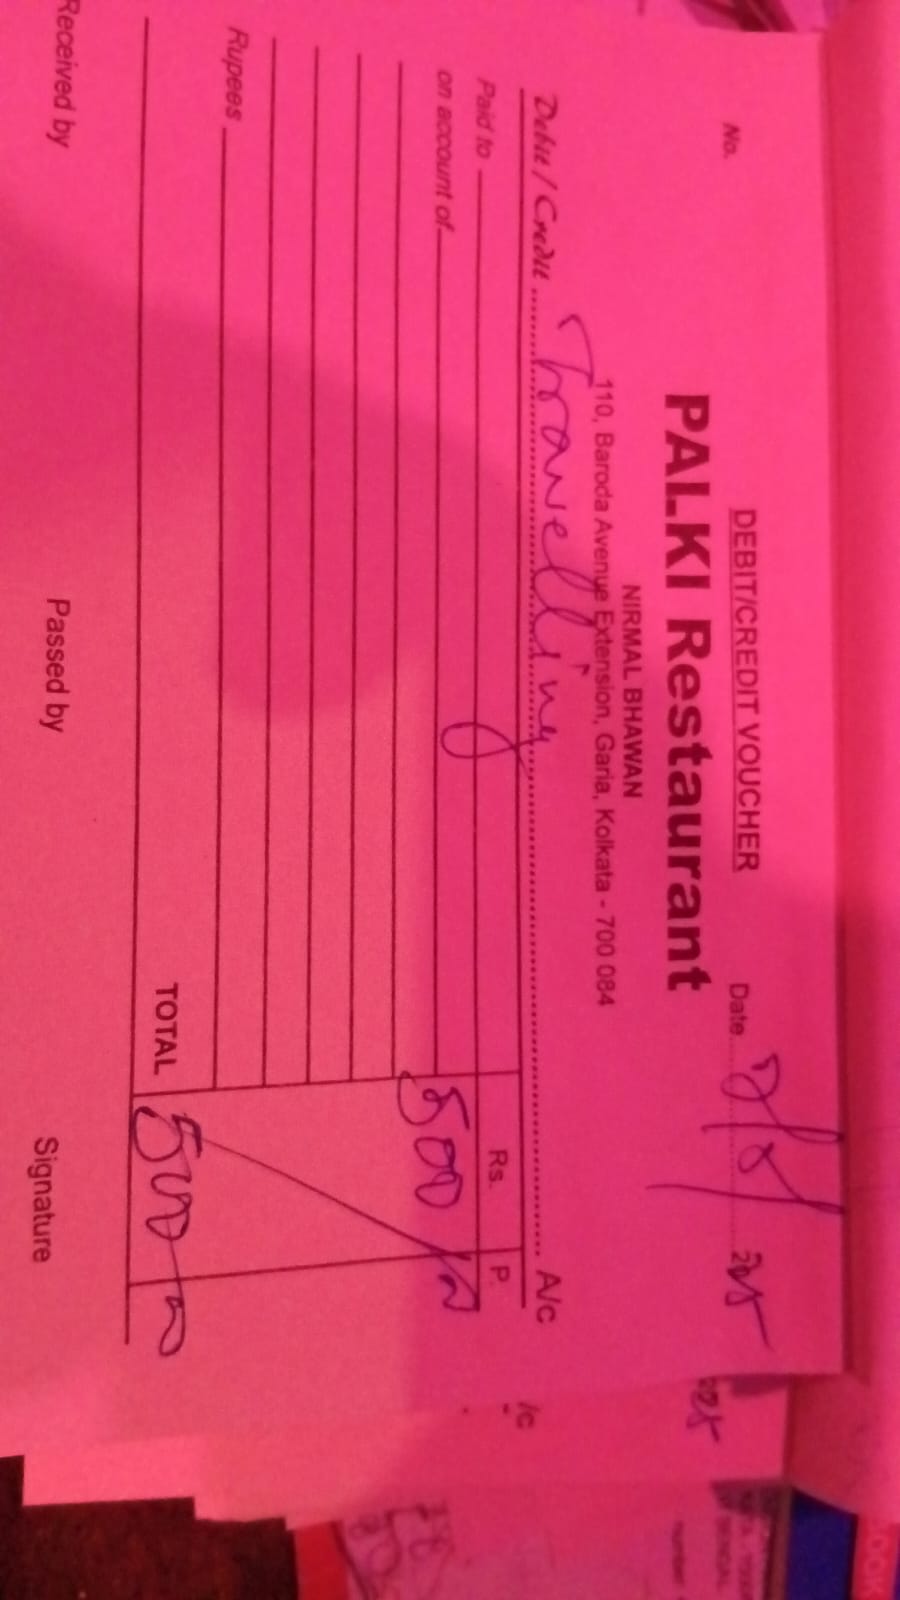 DEBIT/CREDIT VOUCHER
No.
Date 2025
PALKI Restaurant
NIRMAL BHAWAN
110, Baroda Avenue Extension, Garia, Kolkata - 700 084
Debit / Credit Travelling A/c
Paid to Rs. P.
on account of 500/-
Rupees
TOTAL 500-00
Received by Passed by Signature